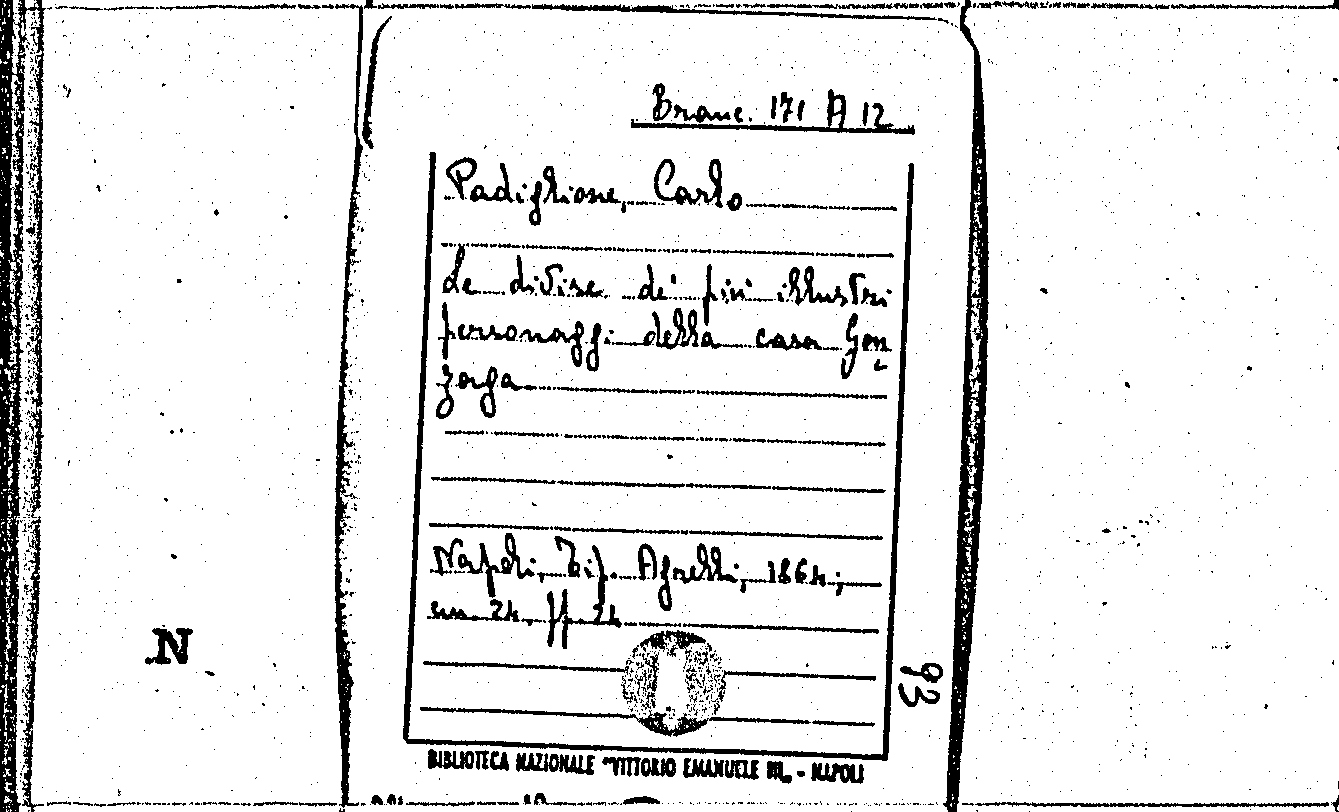 Branc. 171 A 12
Padiglione, Carlo
Le divise de' più illustri
personaggi della casa Gon
zaga
Napoli, Tip. Agrelli, 1864;
cm. 24. pp. 24
93
N
BIBLIOTECA NAZIONALE "VITTORIO EMANUELE III„ - NAPOLI